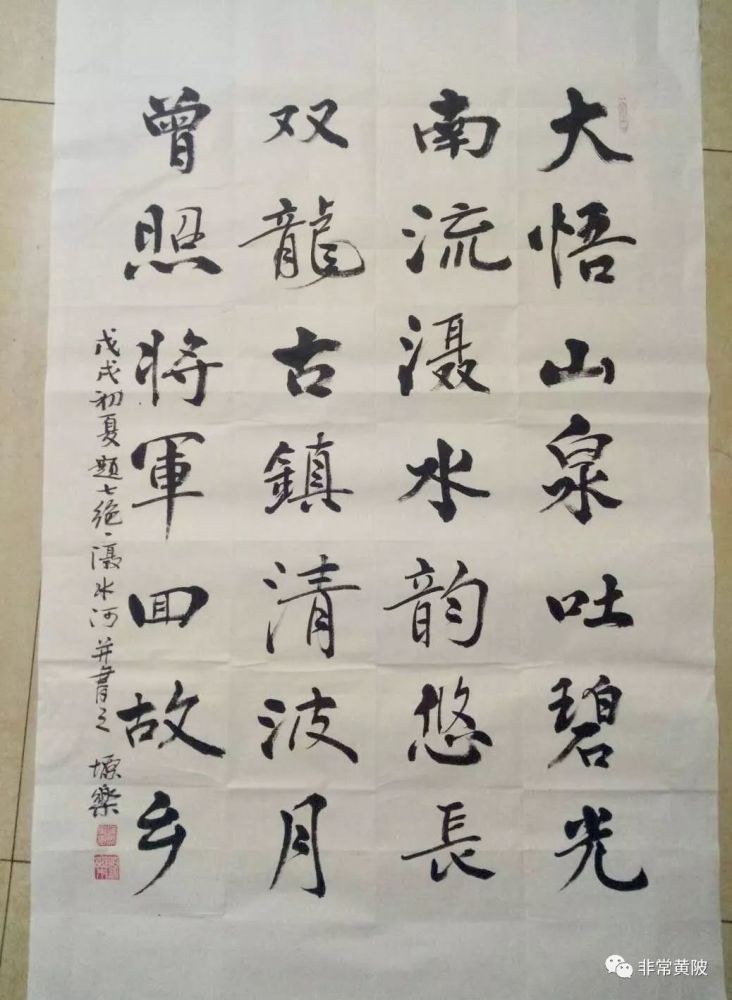 大悟山泉吐碧光
南流滠水韵悠長
双龍古鎮清波月
曾照将軍回故乡
戊戌初夏題七绝·滠水河并書之
樂
非常黄陂